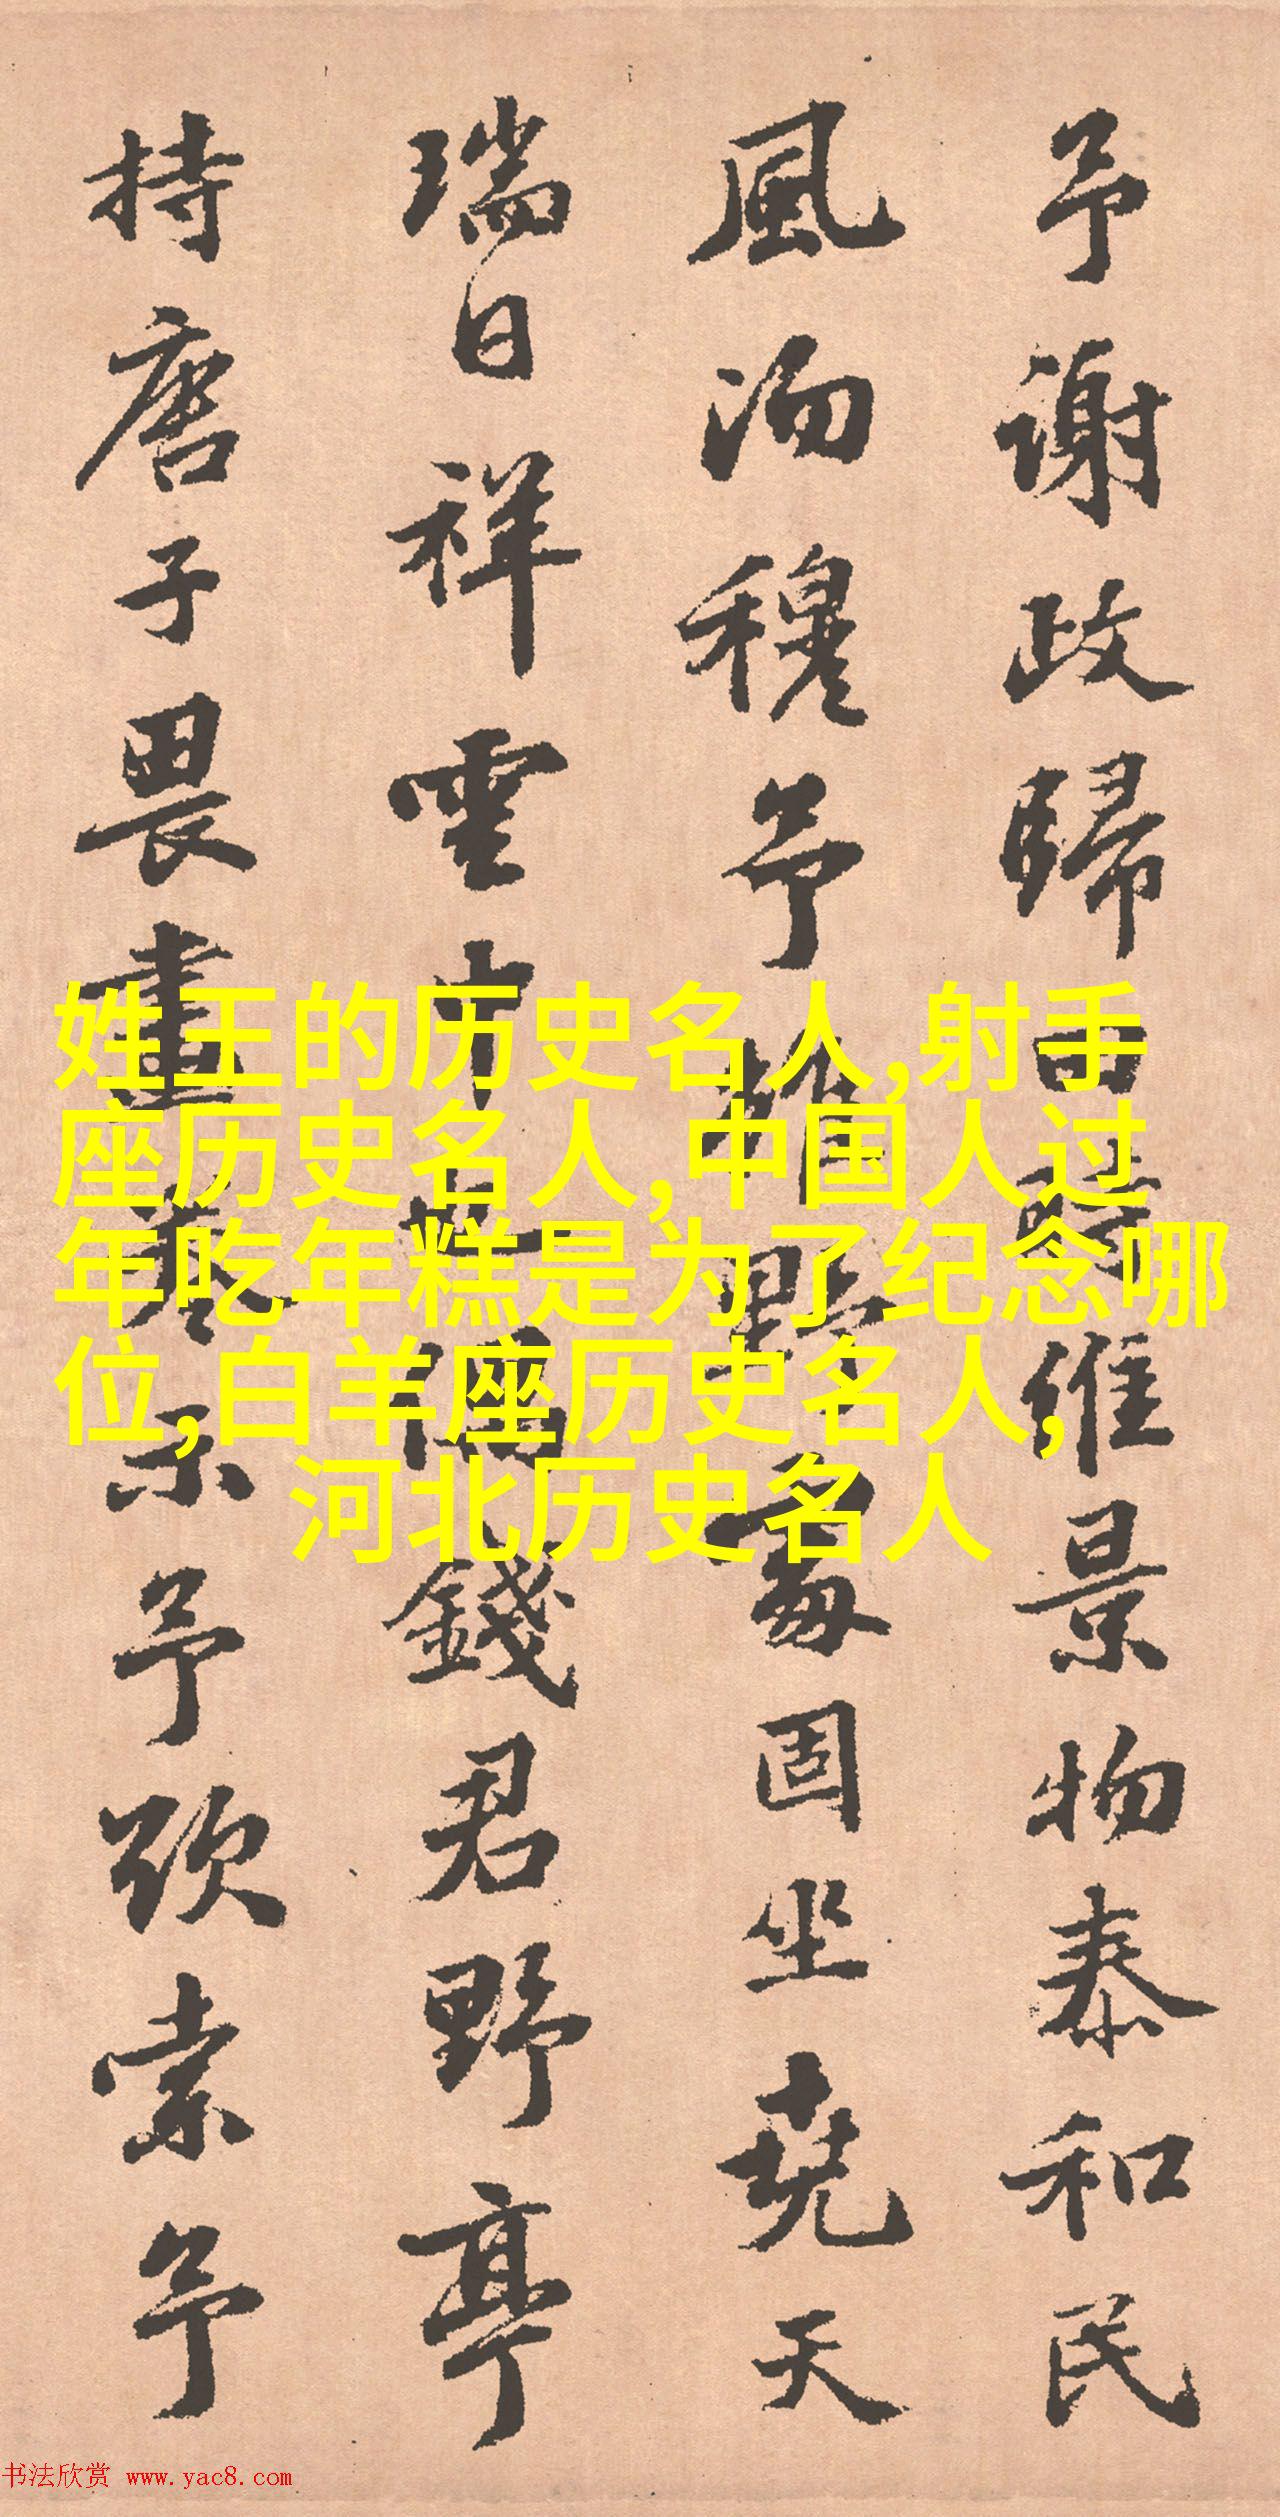 予謝政歸田時維景物泰和民
風沕穆予野固坐堯天
瑞日祥雲中也偶錢君野亭
持唐子畏畫卷示予索予
姓王的历史名人,射手
座历史名人,中国人过
年吃年糕是为了纪念哪
位,白羊座历史名人,
河北历史名人
书法欣赏 www.yac8.com